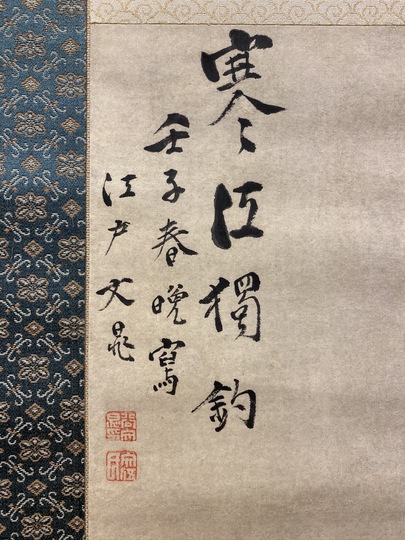 寒江獨釣
壬子春晚寫
江戶文晁